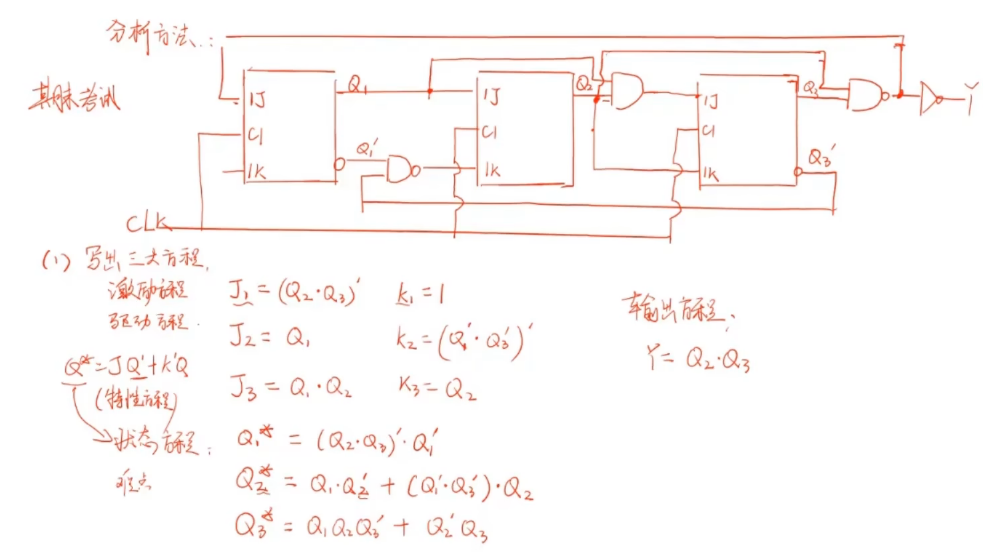 分析方法.:
期末考试
1J
C1
1K
Q₁
Q₁′
1J
C1
1K
Q₂
1J
C1
1K
Q₃
Q₃′
Y
CLK
(1) 写出三大方程,
激励方程
驱动方程.
J₁ = (Q₂·Q₃)′ k₁ = 1
J₂ = Q₁ k₂ = (Q₁′·Q₃′)′
J₃ = Q₁·Q₂ K₃ = Q₂
输出方程:
Y = Q₂·Q₃
Q* = JQ′ + k′Q
(特性方程)
状态方程:
难点
Q₁* = (Q₂·Q₃)′·Q₁′
Q₂* = Q₁·Q₂′ + (Q₁′·Q₃′)·Q₂
Q₃* = Q₁Q₂Q₃′ + Q₂′Q₃